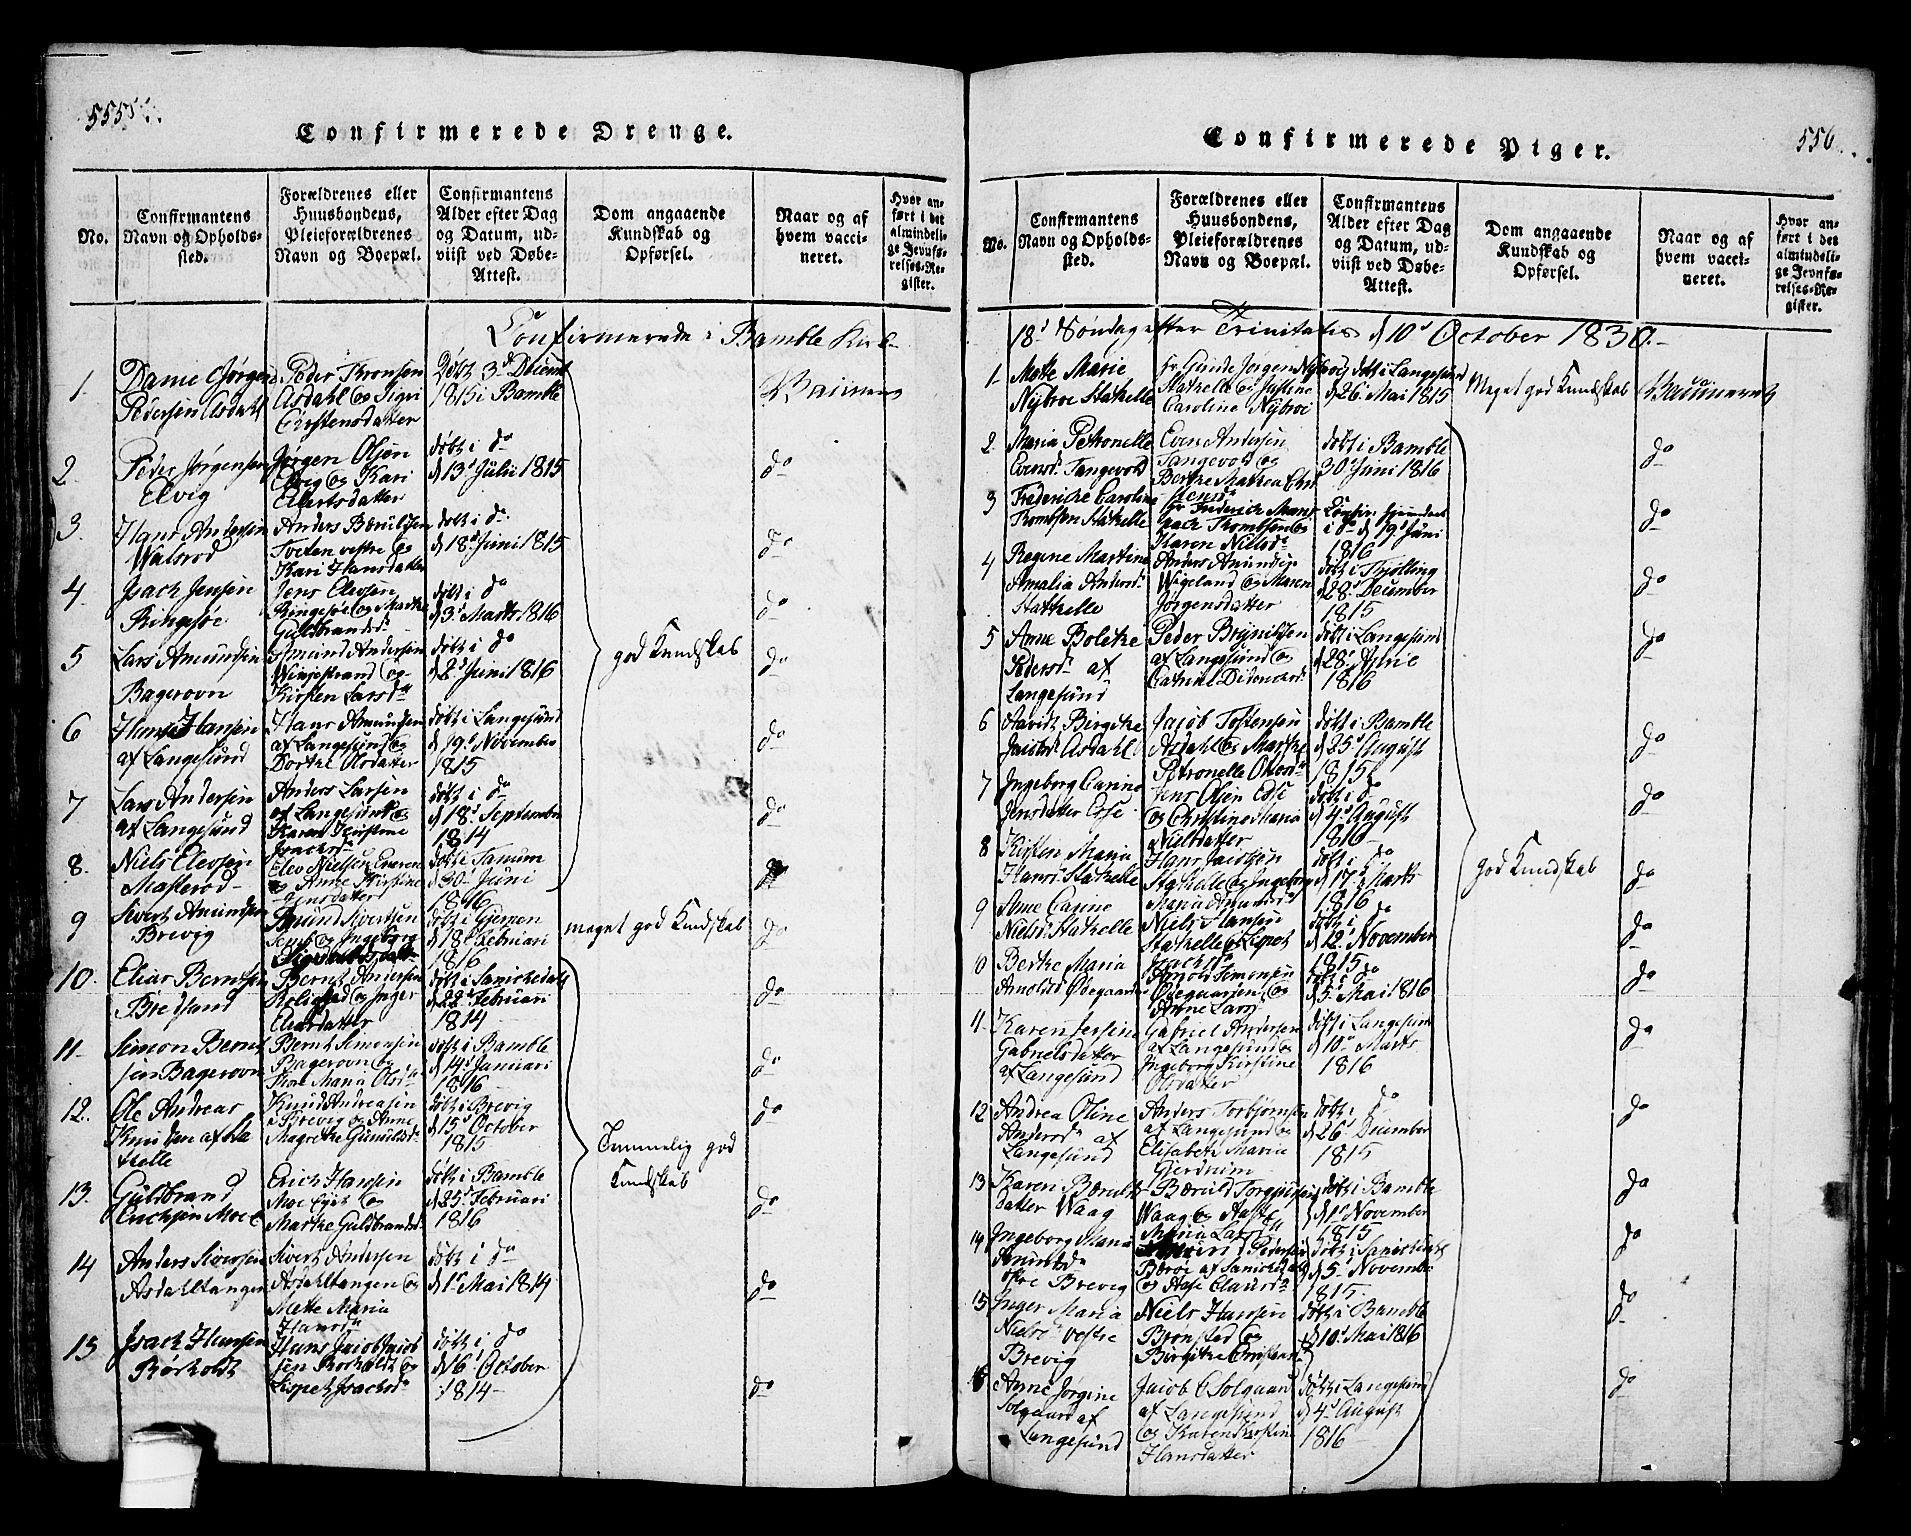 555
Confirmerede Drenge.
No.
Confirmantens
Navn og Opholds-
sted.
Forældrenes eller
Huusbondens,
Pleieforældrenes
Navn og Boepæl.
Confirmantens
Alder efter Dag
og Datum, ud-
viist ved Døbe-
Attest.
Dom angaaende
Kundskab og
Opførsel.
Naar og af
hvem vacci-
neret.
Hvor an-
ført i det
almindeli-
ge Jevnfø-
relses-Re-
gister.
Confirmerede i Bamble Kirke
1
Pedersen Asdahl
Peder
Asdahl og Sigri
døbt 3d
1815 i Bamble
2.
Peder Jørgensen
Elvig
Jørgen Olsen
Elvig og Kari
døbt i do
d 13d Julii 1815
do
3.
Hans Andersen
Anders
Tveten vestre og
Kari Hansdatter
døbt i do
d 18d Juni 1815
do
4.
Isach Jensen
Ringsøe
Jens
Ringsøe og Marthe
Guldbrandsd
døbt i do
d 3d Marts 1816
do
5
Lars Amundsen
Bagerovn
Amund Andersen
og
Kirsten Larsdr
døbt i do
d 2d Juni 1816
god Kundskab
do
6
Hans Hansen
af Langesund
Hans Amundsen
af Langesund og
Dorthe Olsdatter
døbt i Langesund
d 19d November
1815
do
7
Lars Andersen
af Langesund
Anders Larsen
af Langesund og
Karen Kirstine
Isachsdr
døbt i do
d 18d September
1814
do
8.
Niels Elevsen
Elev Nielsen
Anne Kirstine
døbt i Sanum
d 30 Juni
1816
9
Sivert Amundsen
Brevig
Amund Sivertsen
og Ingeborg
d 18 Februari
1816
meget god Kundskab
do
10.
Elias Berntsen
Bernt Andersen
og Inger
Eliasdatter
døbt i Sanickedahl
d 22d Februari
1814
do
11-
Simon Bernt
sen Bagerovn
Bernt Simonsen
Bagerovn og
Maria Olsdr
døbt i Bamble
d 14d Januari
1816
do
12.
Ole Andreas
Knudsen af Sta
thelle
Knud Andreasen
i Brevig og Anne
Magrethe
døbt i Brevig
d 15d October
1815
Temmelig god
Kundskab
do
13.
Guldbrand
Erichsen Moe
Erich Hansen
Moe og
Marthe Guldbrandsd
døbt i Bamble
d 25d Februari
1816
do
14
Anders Sivertsen
Asdahltangen
Sivert Andersen
Asdahltangen og
Mette Maria
Hansdr
døbt i do
d 1d Mai 1814
do
15
Isach Hansen
Rørholdt
Hans Jacob Jacob
sen Rørholdt og
Lispet Isachsdr
døbt i do
d 16d October
1814
do
556
Confirmerede Piger.
No.
Confirmantens
Navn og Opholds-
sted.
Forældrenes eller
Huusbondens,
Pleieforældrenes
Navn og Boepæl.
Confirmantens
Alder efter Dag
og Datum, ud-
viist ved Døbe-
Attest.
Dom angaaende
Kundskab og
Opførsel.
Naar og af
hvem vacci-
neret.
Hvor an-
ført i det
almindeli-
ge Jevnfø-
relses-Re-
gister.
18d Søndag efter Trinitatis d 10d October 1830.
1
Mette Marie
Nybroe Stathelle
Jørgen Nybroe
Stathelle og Justine
Caroline Nybroe
døbt i Langesund
d 26d Mai 1815
Meget god Kundskab
Vaccineret
2
Maria Petronelle
Evensd Tangevold
Even Andersen
Tangevold og
Berthe Mathea Chri
stensdr
døbt i Bamble
30d Juni 1816
do
3
Frederiche Caroline
Thombsen Stathelle
Hr Frederich
Thombsen og
Karen Nielsdr
i do d 19d Juni
1816
do
4
Regine Martine
Amalia Andersd
Stathelle
Anders
Wigeland og Maren
Jørgensdatter
døbt i Tjølling
d 28d December
1815
do
5
Anne Bolethe
Pedersd af
Langesund
Peder Brynildsen
af Langesund og
døbt i Langesund
d 28d
1816
do
6
Birgithe
Jacobsd Asdahl
Jacob Tostensen
Asdahl og Marthe
Petronelle Olsdr
døbt i Bamble
d 25d August
1815
do
7
Ingeborg Carine
Jensdatter Eese
Jens Olsen Eese
og Christine Maria
Nielsdatter
døbt i do
d 4d August
1816
do
8
Kirsten Maria
Hansd Stathelle
Hans Jacobsen
Stathelle og Ingeborg
Maria
døbt i do
d 17d Marts
1816
god Kundskab
do
9
Anne Carine
Nielsd Stathelle
Niels Hansen
Stathelle og Lispet
Isachsd
døbt i do
d 12d November
1815
do
10
Berthe Maria
Arnoldsd Ødegaarden
Arnold Simonsen
Ødegaarden og
Anne Larsd
døbt i do
d 5d Mai 1816
do
11
Karen
Gabrielsdatter
af Langesund
Gabriel Andersen
af Langesund og
Ingeborg Kirstine
Olsdatter
døbt i Langesund
d 10d Marts
1816
do
12
Andrea Oline
Andersd af
Langesund
Anders Torbjørnsen
af Langesund og
Elisabeth Maria
Gierdrum
døbt i do
d 26d December
1815
do
13
Karen
datter Waag
Waag og
Maria
døbt i Bamble
d 1d November
1815
do
14
Ingeborg Maria
Brevig
Pedersen
af Sanickedahl
døbt i Sanickedahl
d 5d November
1815
do
15
Inger Maria
Nielsd vestre
Brevig
Niels Hansen
Brønsted og
Birgithe
døbt i Bamble
d 10d Mai 1816
do
16
Anne Jørgine
Solgaard af
Langesund
Jacob C Solgaard
af Langesund
og Karen Kirstine
Hansdatter
døbt i Langesund
d 4d August
1816
do